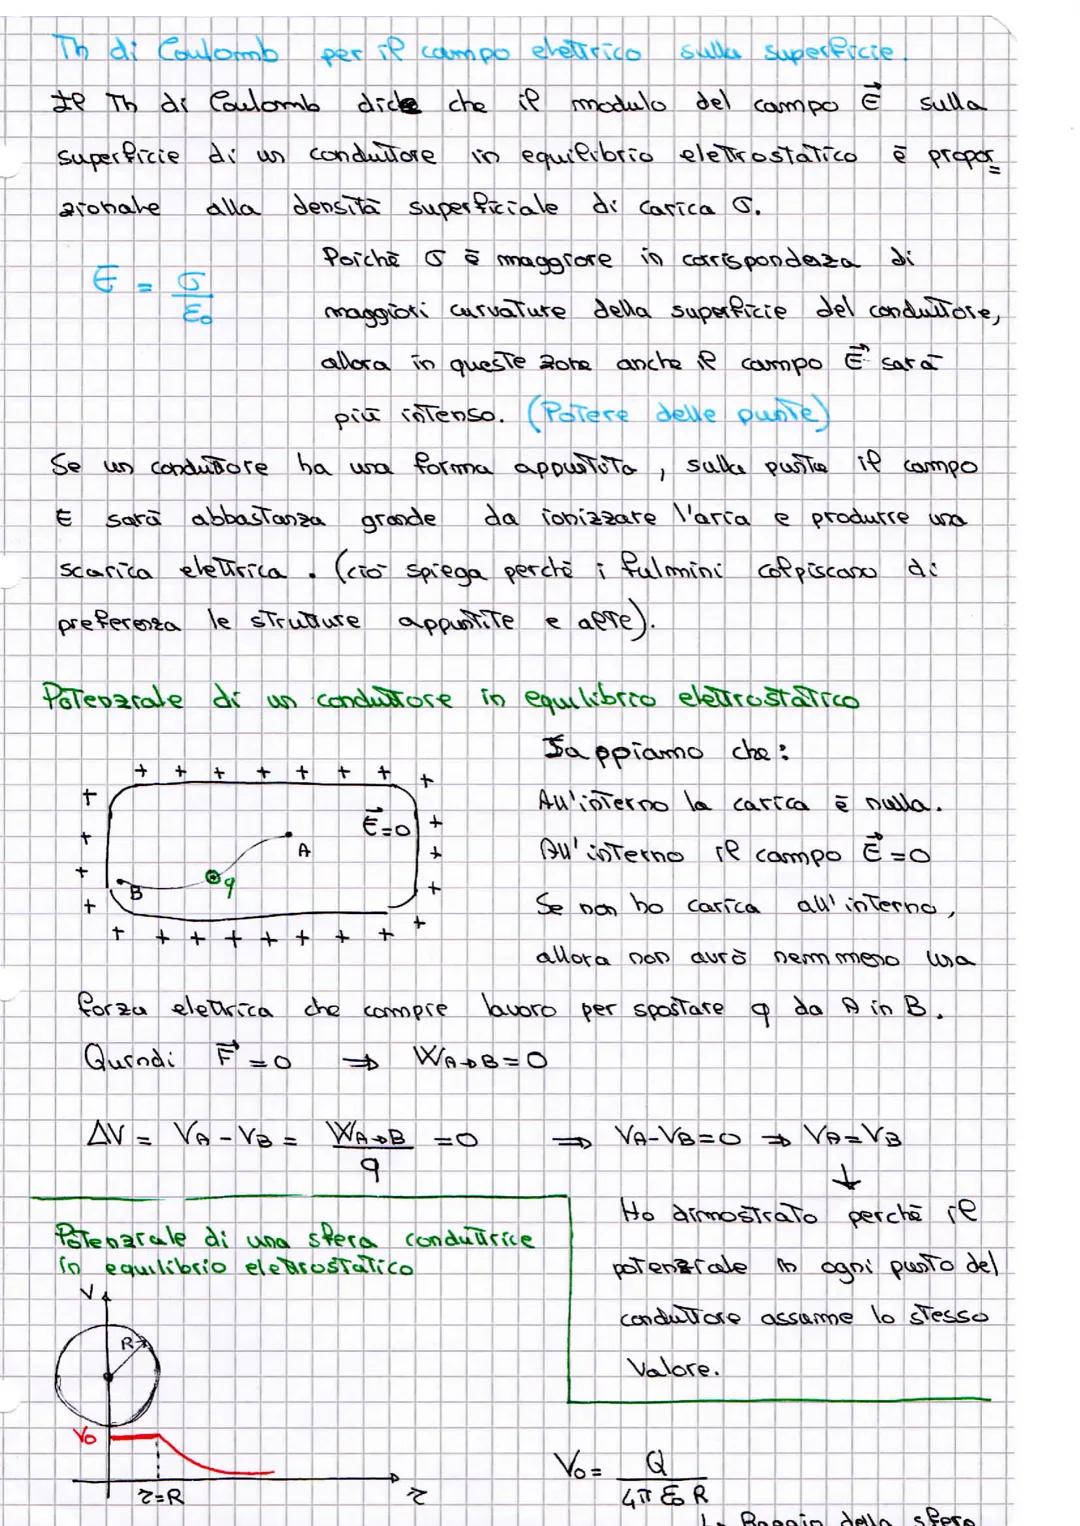 Th di Coulomb per il campo elettrico sulla superficie.
Il Th di Coulomb dice che il modulo del campo E⃗ sulla
superficie di un conduttore in equilibrio elettrostatico è propor=
zionale alla densità superficiale di carica σ.
E = σ/ε₀
Poichè σ è maggiore in corrispondenza di
maggiori curvature della superficie del conduttore,
allora in queste zone anche il campo E⃗ sarà
più intenso. (Potere delle punte)
Se un conduttore ha una forma appuntita, sulla punta il campo
E sarà abbastanza grande da ionizzare l'aria e produrre una
scarica elettrica. (ciò spiega perchè i fulmini colpiscano di
preferenza le strutture appuntite e alte).
Potenziale di un conduttore in equilibrio elettrostatico
Sappiamo che:
+ + + + + + + +
+ + + +
+ + + +
+ + + + + + + + +
E⃗=0
A
B
q
All'interno la carica è nulla.
All'interno il campo E⃗=0
Se non ho carica all'interno,
allora non avrò nemmeno una
forza elettrica che compie lavoro per spostare q da A in B.
Quindi F⃗=0 ⇒ WA→B=0
ΔV = VA-VB = WA→B/q =0 ⇒ VA-VB=0 ⇒ VA=VB
↓
Ho dimostrato perchè il
potenziale in ogni punto del
conduttore assume lo stesso
valore.
Potenziale di una sfera conduttrice
in equilibrio elettrostatico
V
R
V₀
r=R
r
V₀= Q/4π ε₀ R
↳ Raggio della sfera